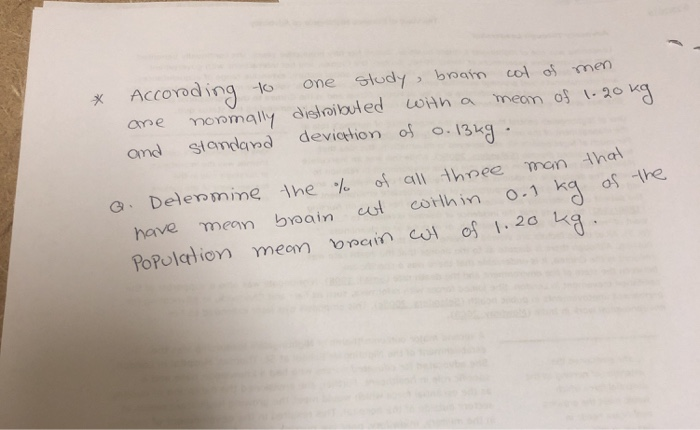 * According to one study, brain wt of men
are normally distributed with a mean of 1.20 kg
and standard deviation of 0.13kg.
Q. Determine the % of all three man that
have mean brain wt within 0.1 kg of the
Population mean brain wt of 1.20 kg.